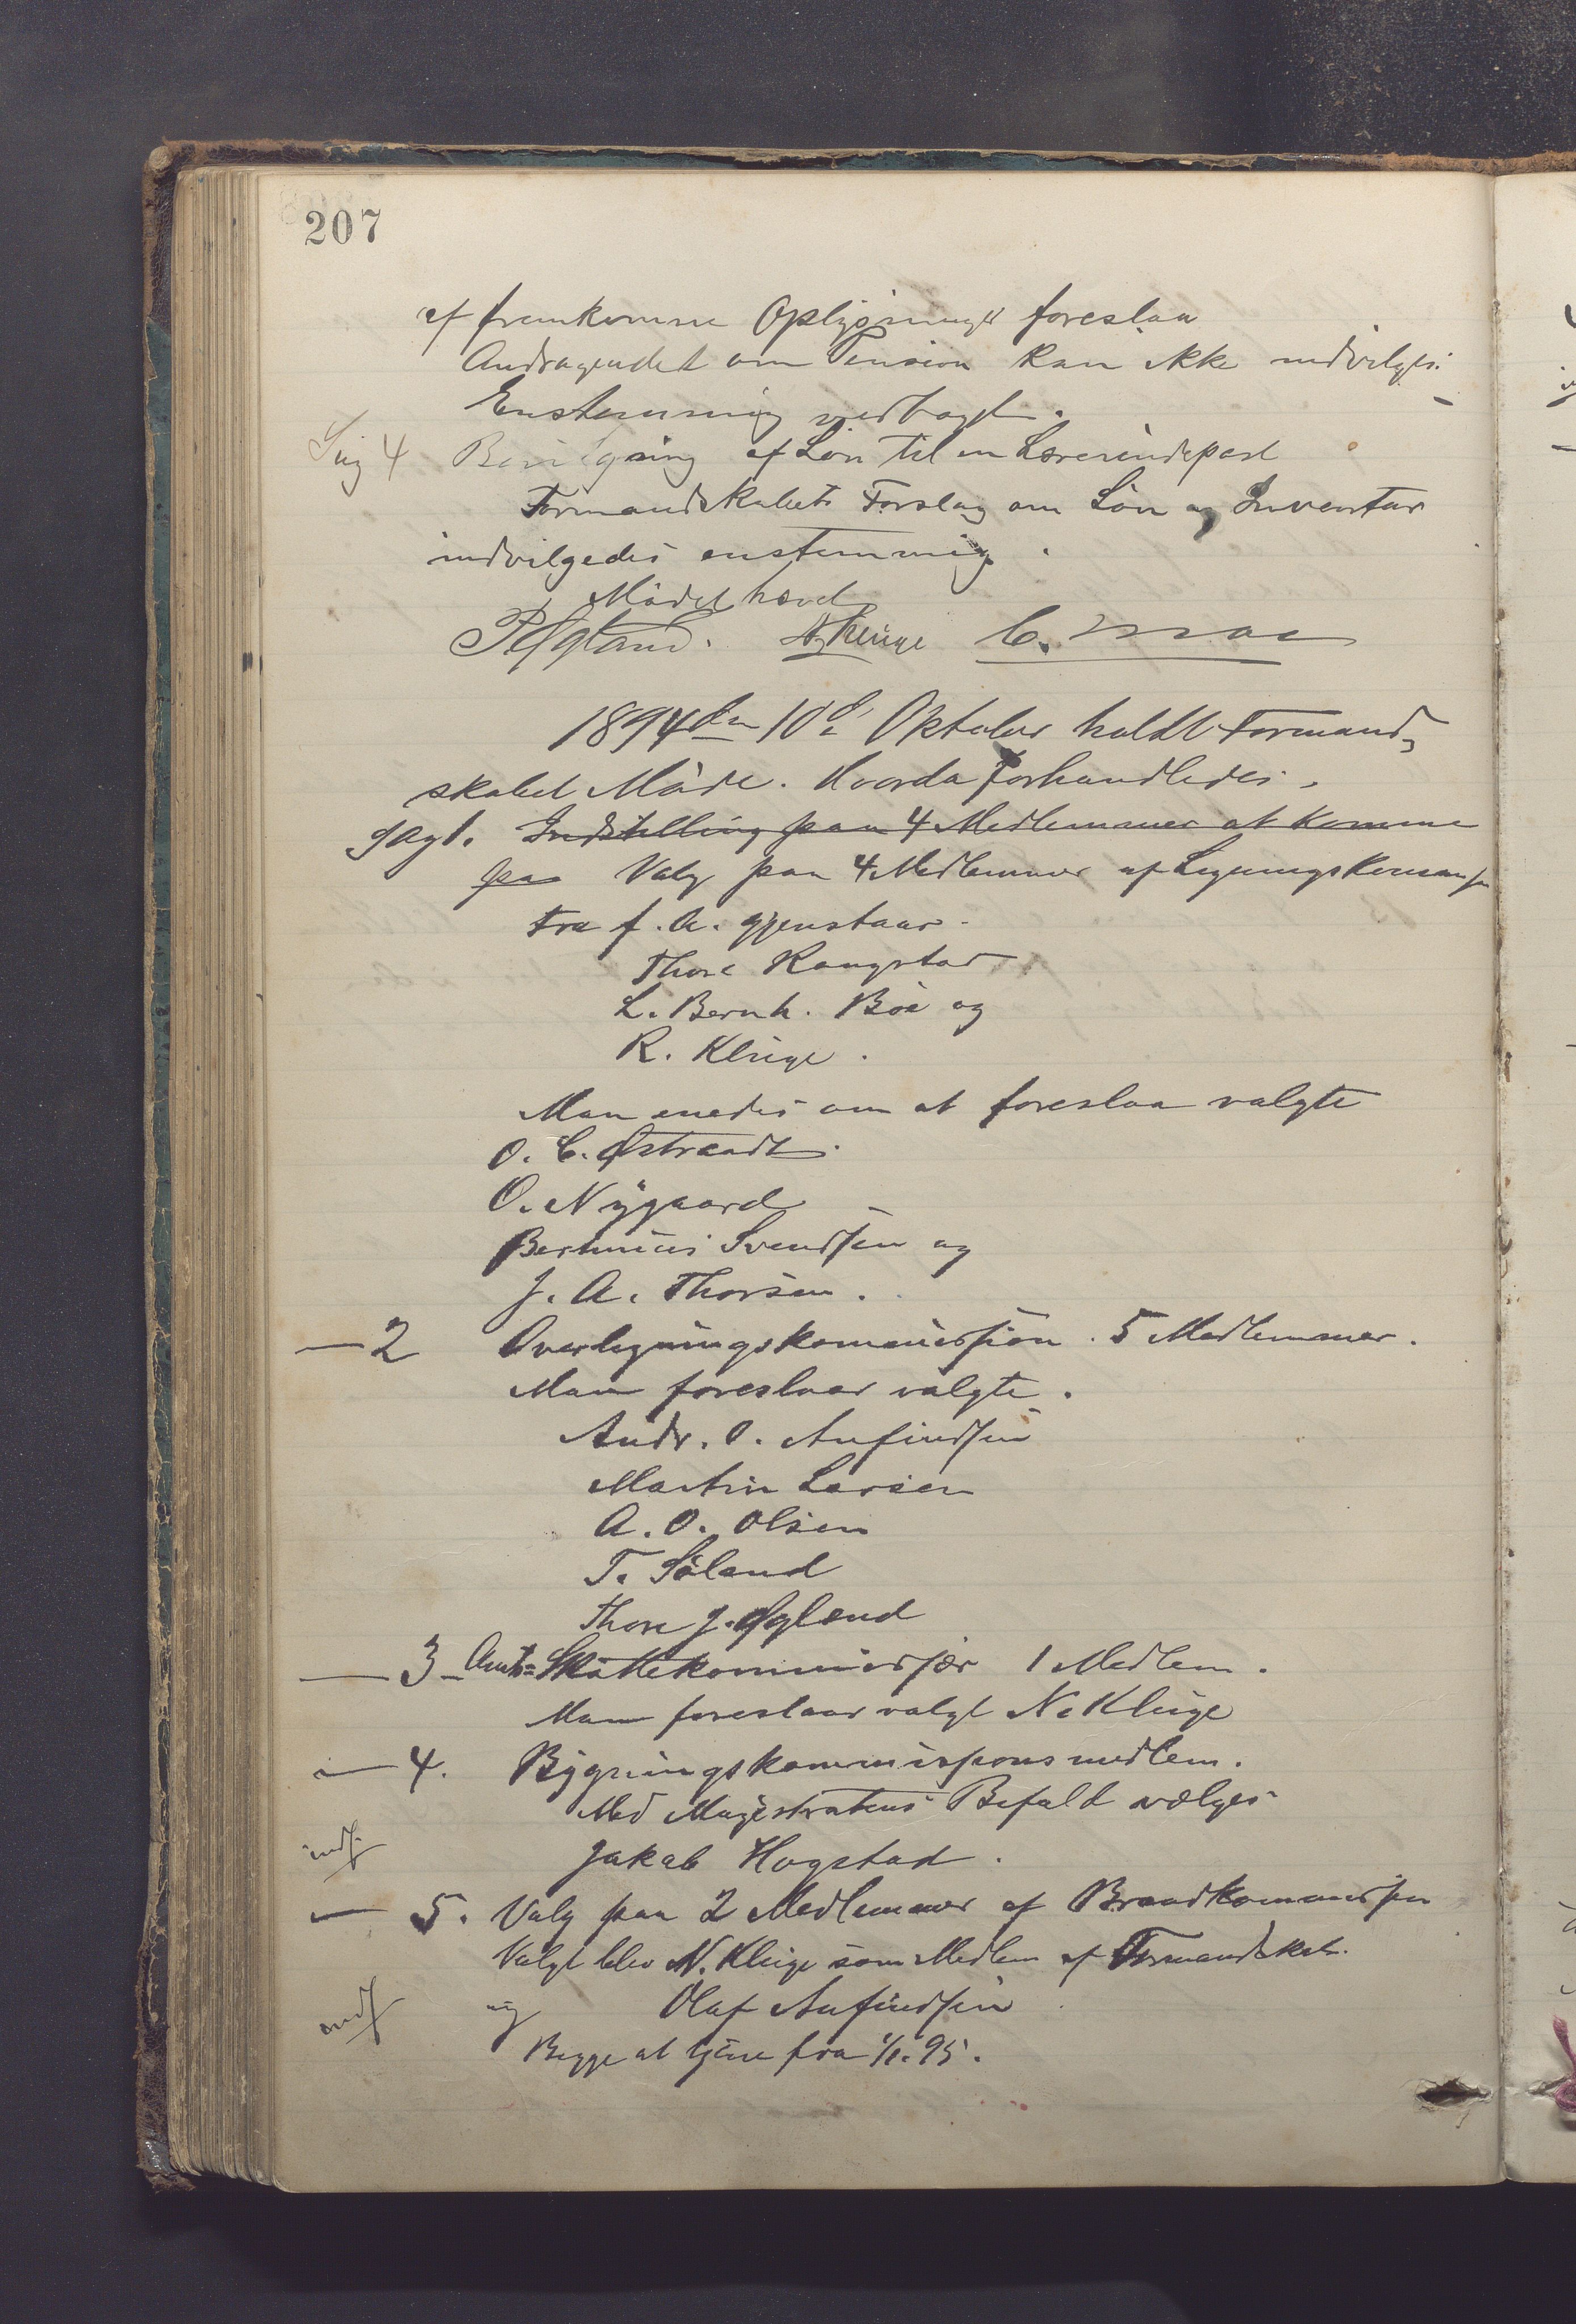 207
af fremkomne Oplysninger foreslaa
Andragendet om Pension kan ikke indvilges.
Enstemmig vedtaget.
Sag 4 Bevilgning af Løn til en Lærerindepost
Formandskabets Forslag om Løn og Inventar
indvilgedes enstemmig.
Mødet hævet
N Kluge
1894 den 10de Oktober holdt Formand-
skabet Møde. Hvorda forhandledes.
Sag 1. Indstilling paa 4 Medlemmer at komme
paa Valg paa 4 Medlemmer af Ligningskommisj
Fra f. A. gjenstaar.
Thore Rangstad
L. Bernh. Bøe og
R. Kluge.
Man enedes om at foreslaa valgte
O. C. Østraadt.
O. Nygaard
Bertinius Svendsen og
J. A. Thorsen.
— 2 Overligningskommission. 5 Medlemmer.
Man foreslaar valgte.
Andr. O. Anfindsen
Martin Larsen
A. O. Olsen
T. Søland
Thore J. Øgland
— 3 Amts-Skattekommissær 1 Medlem.
Man foreslaar valgt N. Kluge
— 4. Bygningskommisionsmedlem.
Med Magistratens Bifald vælges
indf. Jakob Hogstad.
— 5. Valg paa 2 Medlemmer af Brandkommissjon
Valgt blev N. Kluge som Medlem af Formandskab.
indf og Olaf Anfindsen
Begge at tjene fra 1/1. 95.